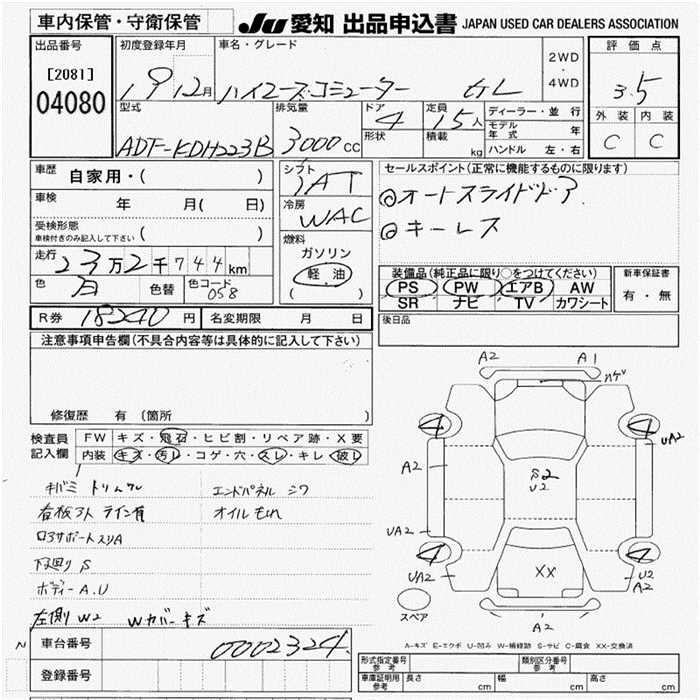 車内保管・守衛保管
JU 愛知 出品申込書 JAPAN USED CAR DEALERS ASSOCIATION
出品番号
[2081]
04080
初度登録年月
19 12月
車名・グレード
ハイエース コミューター GL
2WD
・
4WD
評価点
3.5
外装 内装
C C
型式
ADF-KDH223B
排気量
3000cc
ドア
4
形状
定員
15人
積載
kg
ディーラー・並行
モデル年式 年
ハンドル 左・右
車歴
自家用・( )
車検
年 月( 日)
受検形態
車検付きのみ記入して下さい ( )
走行
23万2千744km
色
色替
色コード
058
シフト
IAT
冷房
WAC
燃料
ガソリン
軽油
( )
セールスポイント(正常に機能するものに限ります)
◎オートスライドドア
◎キーレス
装備品(純正品に限り○をつけてください)
PS PW エアB AW
SR ナビ TV カワシート
新車保証書
有・無
後日品
R券 18240円
名変期限 月 日
注意事項申告欄(不具合内容等は具体的に記入して下さい)
修復歴 有(箇所 )
検査員
記入欄
FW キズ・飛石・ヒビ割・リペア跡・X要
内装 キズ・汚レ・コゲ・穴・スレ・キレ・破レ
エンドパネル シワ
看板アト ライン有
オイルもれ
下廻り S
ボディーA.U
左側 W2 Wカバーキズ
車台番号
0002324
登録番号
A2
A1
ハゲ
4
4
UA2
A2
S2
U2
UA2
4
4
UA2
XX
U2
A2
スペア
A2
A-キズ E-エクボ U-凹み W-補修跡 S-サビ C-腐食 XX-交換済
形式指定番号
参考
類別区分番号
参考
車庫証明用
参考
長さ cm
幅 cm
高さ cm